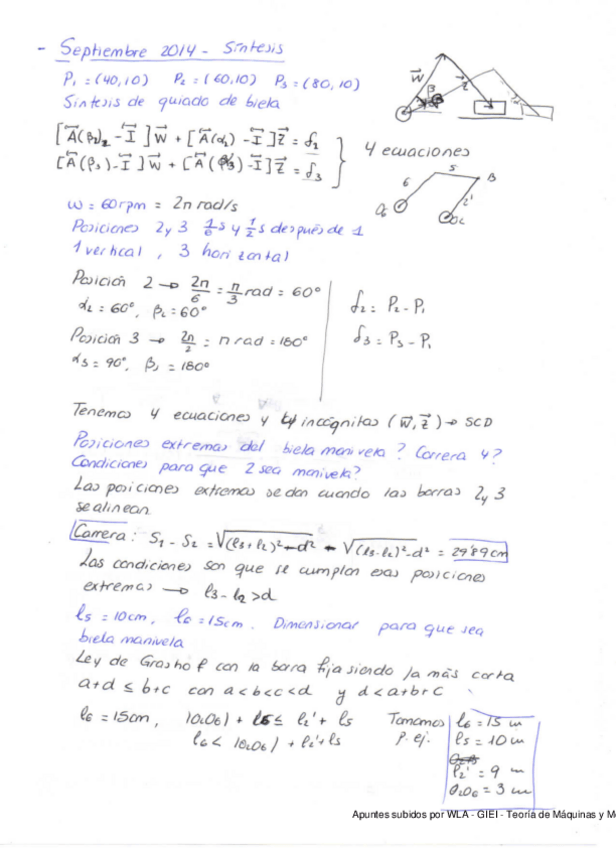 - Septiembre 2014 - Síntesis
P₁ = (40,10) P₂ = (60,10) P₃ = (80,10)
Síntesis de guiado de biela
[A(β₂)₂ - I]W + [A(α₂) - I]Z = δ₂
[A(β₃) - I]W + [A(β₃) - I]Z = δ₃
4 ecuaciones
W
Z
β
6
5
B
2'
O₆
O₂
ω = 60rpm = 2π rad/s
Posiciones 2 y 3 1/6 s y 1/2 s después de 1
1 vertical, 3 horizontal
Posición 2 → 2π/6 = π/3 rad = 60°
α₂ = 60°, β₂ = 60°
δ₂ = P₂ - P₁
Posición 3 → 2π/2 = π rad = 180°
α₃ = 90°, β₃ = 180°
δ₃ = P₃ - P₁
Tenemos 4 ecuaciones y 4 incógnitas (W, Z) → SCD
Posiciones extremas del biela manivela? Carrera 4?
Condiciones para que 2 sea manivela?
Las posiciones extremas se dan cuando las barras 2 y 3
se alinean.
Carrera: S₁ - S₂ = √(l₃+l₂)²-d² - √(l₃-l₂)²-d² = 29'89 cm
Las condiciones son que se cumplan esas posiciones
extremas → l₃ - l₂ > d
l₅ = 10cm, l₆ = 15cm. Dimensionar para que sea
biela manivela
Ley de Grashof con la barra fija siendo la más corta
a+d ≤ b+c con a<b<c<d y d<a+b+c
l₆ = 15cm, |O₂O₆| + l₆ ≤ l₂' + l₅
l₆ < |O₂O₆| + l₂' + l₅
Tomamos
p. ej.
l₆ = 15 cm
l₅ = 10 cm
l₂' = 9 cm
O₂O₆ = 3 cm
Apuntes subidos por WLA - GIEI - Teoría de Máquinas y M